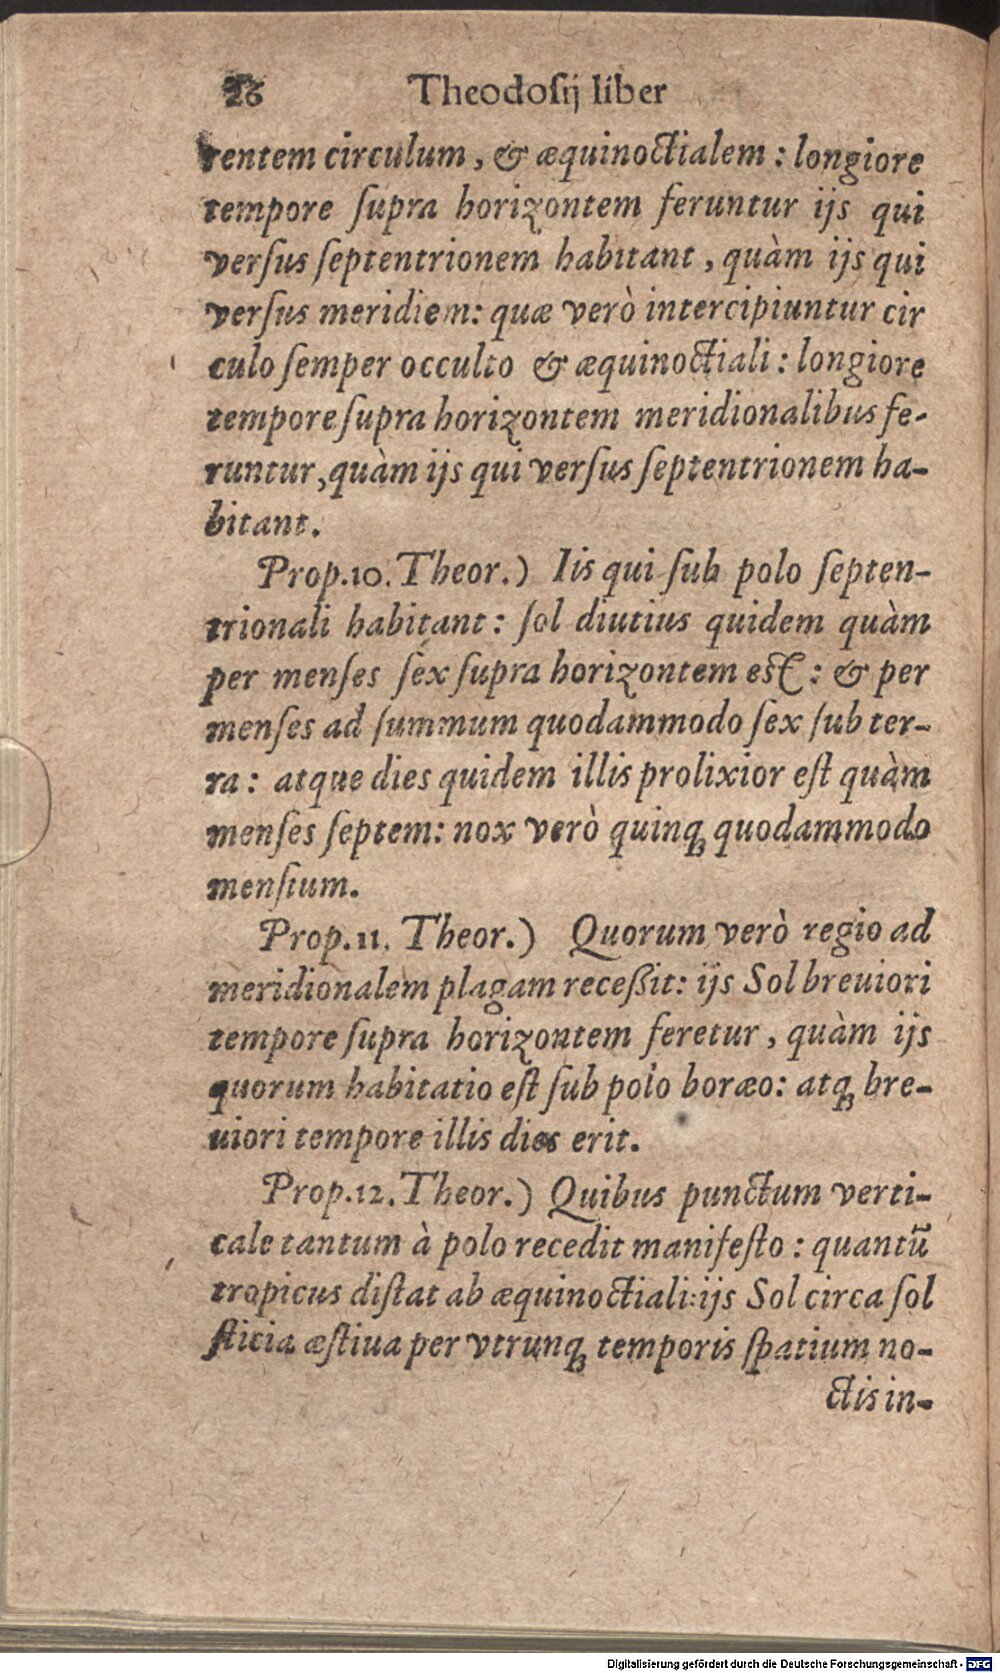 26 Theodosij liber
rentem circulum, & æquinoctialem: longiore
tempore ſupra horizontem feruntur ijs qui
verſus ſeptentrionem habitant, quàm ijs qui
verſus meridiem: quæ verò intercipiuntur cir
culo ſemper occulto & æquinoctiali: longiore
tempore ſupra horizontem meridionalibus fe-
runtur, quàm ijs qui verſus ſeptentrionem ha-
bitant.
Prop.10. Theor.) Iis qui ſub polo ſepten-
trionali habitant: ſol diutius quidem quàm
per menſes ſex ſupra horizontem eſt: & per
menſes ad ſummum quodammodo ſex ſub ter-
ra: atque dies quidem illis prolixior eſt quàm
menſes ſeptem: nox verò quinqꝫ quodammodo
menſium.
Prop.11. Theor.) Quorum verò regio ad
meridionalem plagam receßit: ijs Sol breuiori
tempore ſupra horizontem feretur, quàm ijs
quorum habitatio eſt ſub polo boræo: atqꝫ bre-
uiori tempore illis dies erit.
Prop.12. Theor.) Quibus punctum verti-
cale tantum à polo recedit manifeſto: quantũ
tropicus diſtat ab æquinoctiali: ijs Sol circa ſol
ſticia æſtiua per vtrunqꝫ temporis ſpatium no-
ctis in-
Digitalisierung gefördert durch die Deutsche Forschungsgemeinschaft - DFG